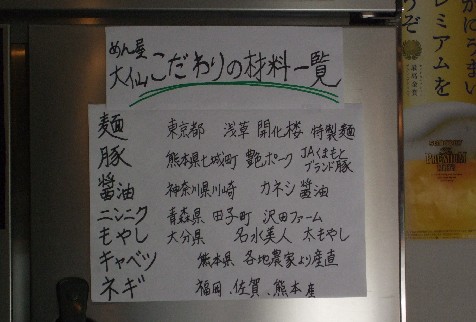 めん屋
大仙 こだわりの材料一覧
麺 東京都 浅草 開化楼 特製麺
豚 熊本県七城町 艶ポーク JAくまもと ブランド豚
醤油 神奈川県川崎 カネシ醤油
ニンニク 青森県 田子町 沢田ファーム
もやし 大分県 名水美人 太もやし
キャベツ 熊本県 各地農家より産直
ネギ 福岡、佐賀、熊本産
レミアムを
うぞ
最高金賞
PREMIUM